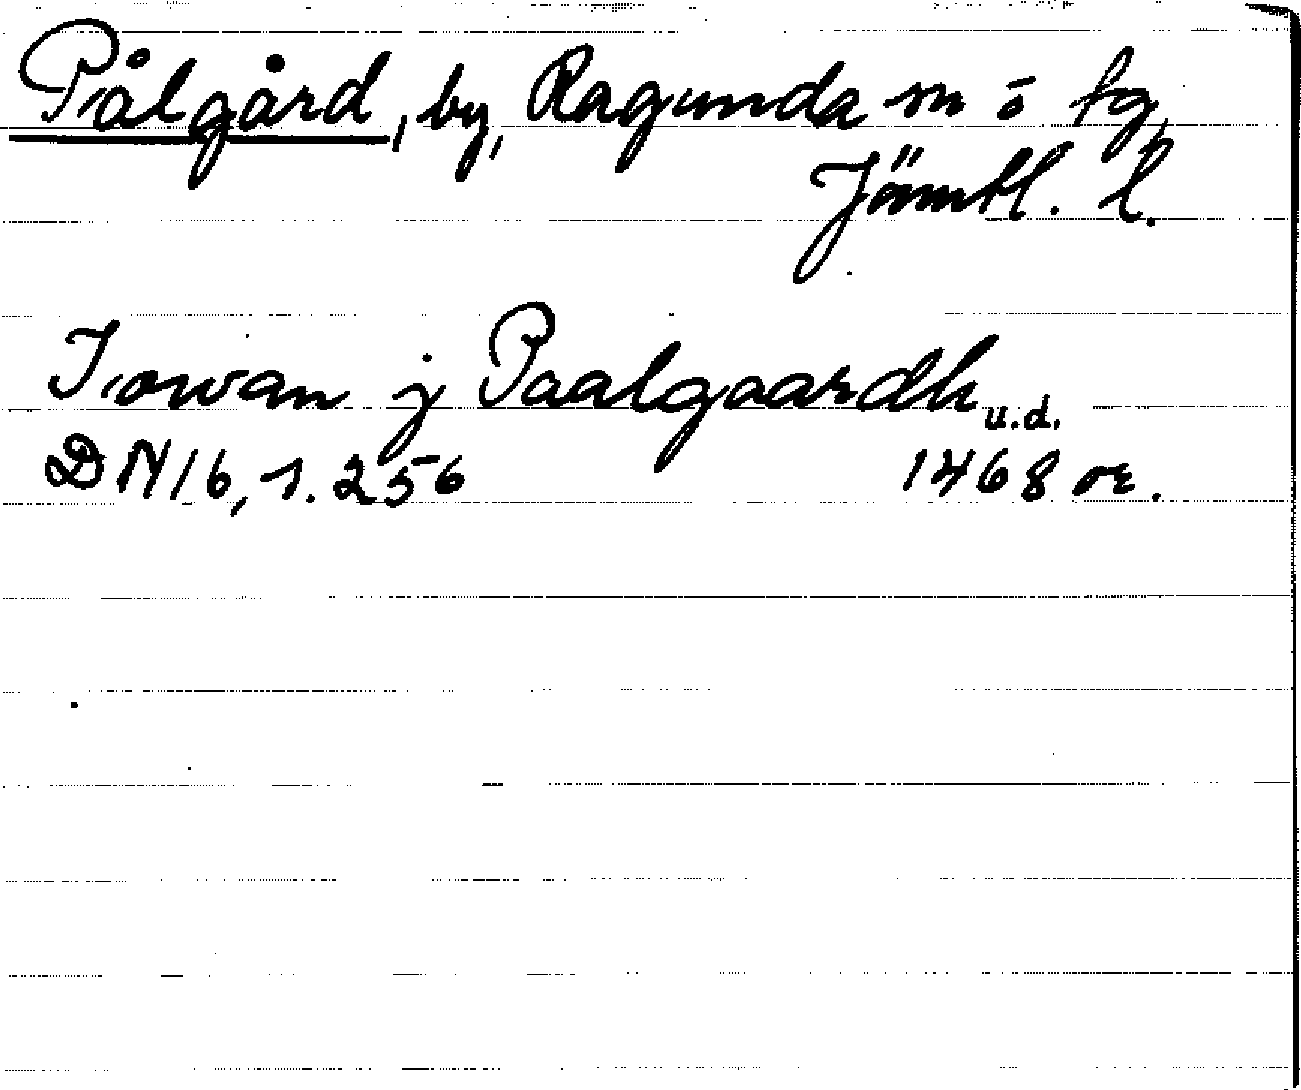 Pålgård, by, Ragunda sn o tg,
Jämtl. l.
Jowan j Paalgaardh u.d.
DN 16, s. 256 1468 or.